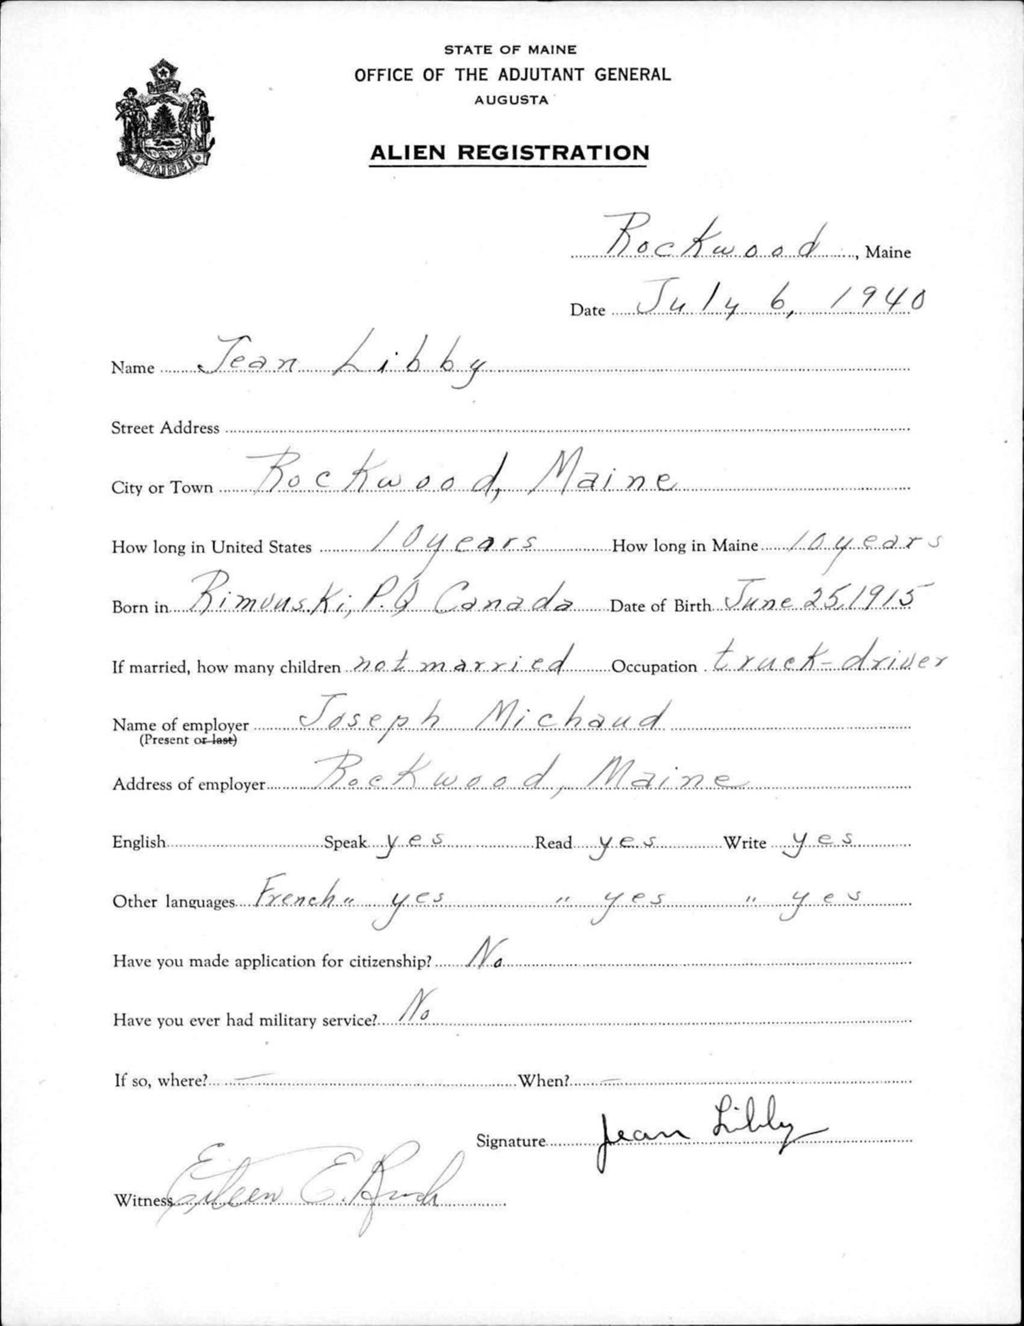 STATE OF MAINE
OFFICE OF THE ADJUTANT GENERAL
AUGUSTA
MAINE
ALIEN REGISTRATION
Rockwood, Maine
Date July 6, 1940
Name Jean Libby
Street Address
City or Town Rockwood, Maine
How long in United States 10 years How long in Maine 10 years
Born in Rimouski, P.Q Canada Date of Birth June 25, 1915
If married, how many children not married Occupation truck-driver
Name of employer Joseph Michaud
(Present or last)
Address of employer Rockwood, Maine
English Speak yes Read yes Write yes
Other languages French " yes " yes " yes
Have you made application for citizenship? No
Have you ever had military service? No
If so, where? — When? —
Signature Jean Libby
Witness Eileen E.